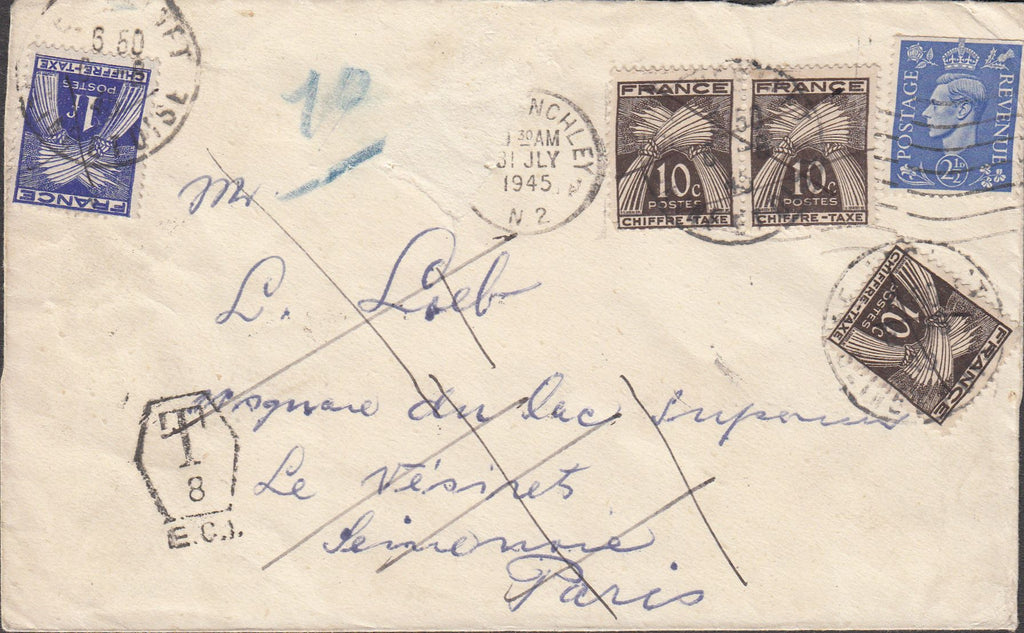 6 50
CHIFFRE-TAXE
POSTES
1F
FRANCE
10
NCHLEY
30 AM
31 JLY
1945
N 2
FRANCE
10c
POSTES
CHIFFRE-TAXE
FRANCE
10c
POSTES
CHIFFRE-TAXE
POSTAGE REVENUE
2½D
FRANCE
10c
POSTES
CHIFFRE-TAXE
Mr
L. Loeb
du lac
Le Vésinets
Paris
T
8
E.C.I.